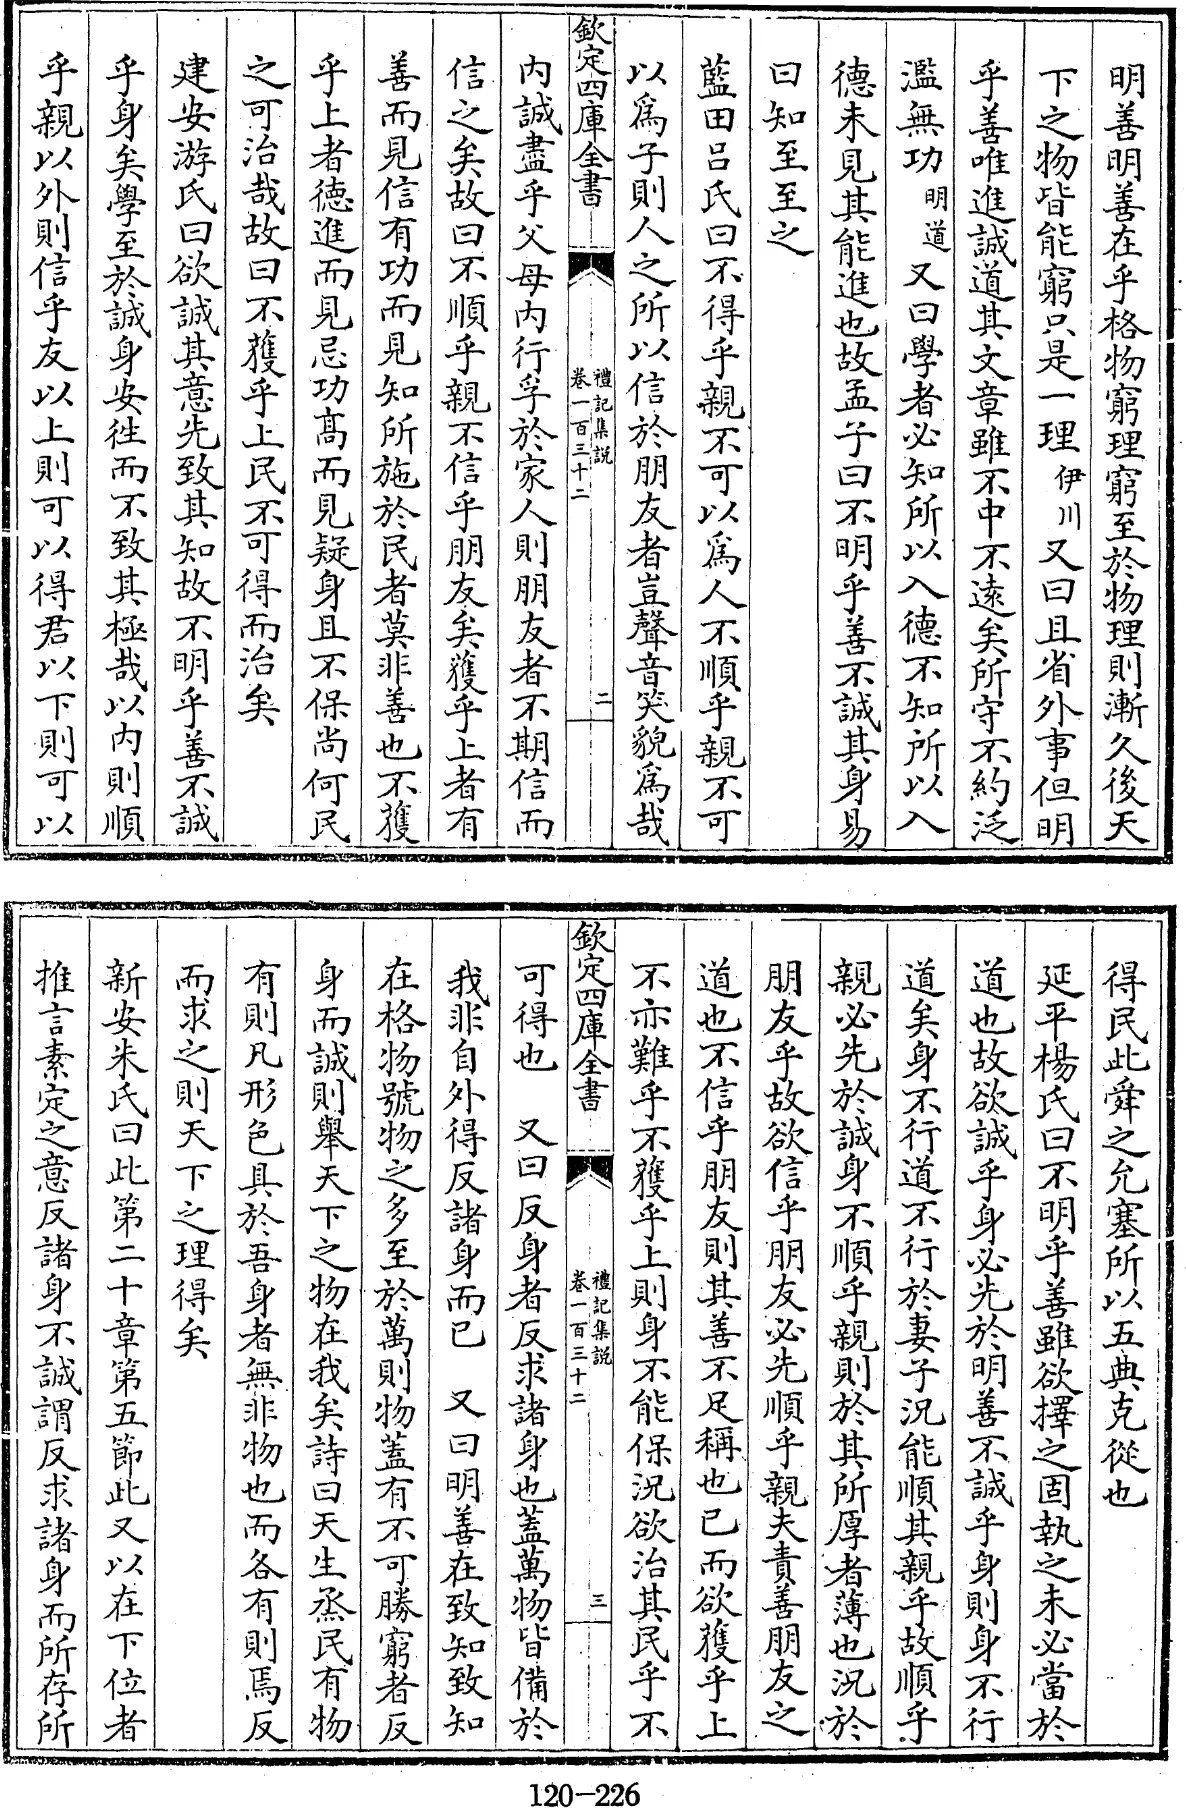 明善明善在乎格物窮理窮至於物理則漸久後天
下之物皆能窮只是一理伊川又曰且省外事但明
乎善唯進誠道其文章雖不中不逺矣所守不約泛
濫無功明道又曰學者必知所以入德不知所以入
德未見其能進也故孟子曰不明乎善不誠其身易
曰知至至之
藍田呂氏曰不得乎親不可以爲人不順乎親不可
以爲子則人之所以信於朋友者豈聲音笑貌爲哉
欽定四庫全書
禮記集説
卷一百三十二
二
内誠盡乎父母内行孚於家人則朋友者不期信而
信之矣故曰不順乎親不信乎朋友矣獲乎上者有
善而見信有功而見知所施於民者莫非善也不獲
乎上者德進而見忌功髙而見疑身且不保尚何民
之可治哉故曰不獲乎上民不可得而治矣
建安游氏曰欲誠其意先致其知故不明乎善不誠
乎身矣學至於誠身安徃而不致其極哉以内則順
乎親以外則信乎友以上則可以得君以下則可以
得民此舜之允塞所以五典克從也
延平楊氏曰不明乎善雖欲擇之固執之未必當於
道也故欲誠乎身必先於明善不誠乎身則身不行
道矣身不行道不行於妻子況能順其親乎故順乎
親必先於誠身不順乎親則於其所厚者薄也況於
朋友乎故欲信乎朋友必先順乎親夫責善朋友之
道也不信乎朋友則其善不足稱也已而欲獲乎上
不亦難乎不獲乎上則身不能保況欲治其民乎不
欽定四庫全書
禮記集説
卷一百三十二
三
可得也　又曰反身者反求諸身也蓋萬物皆備於
我非自外得反諸身而已　又曰明善在致知致知
在格物號物之多至於萬則物蓋有不可勝窮者反
身而誠則舉天下之物在我矣詩曰天生烝民有物
有則凡形色具於吾身者無非物也而各有則焉反
而求之則天下之理得矣
新安朱氏曰此第二十章第五節此又以在下位者
推言素定之意反諸身不誠謂反求諸身而所存所
120-226